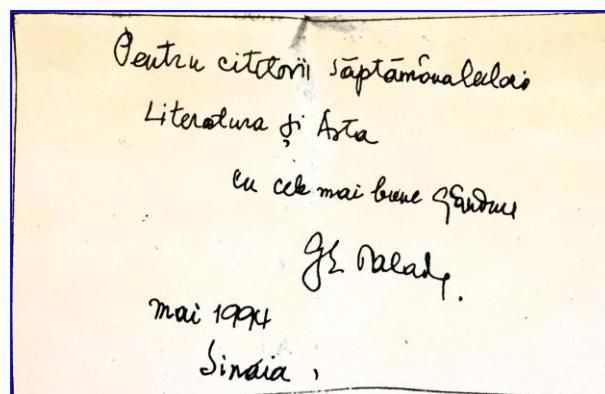 Pentru cititorii săptămânalului
Literatura și Arta
cu cele mai bune gânduri
GE Palade.
mai 1994
Sinaia,